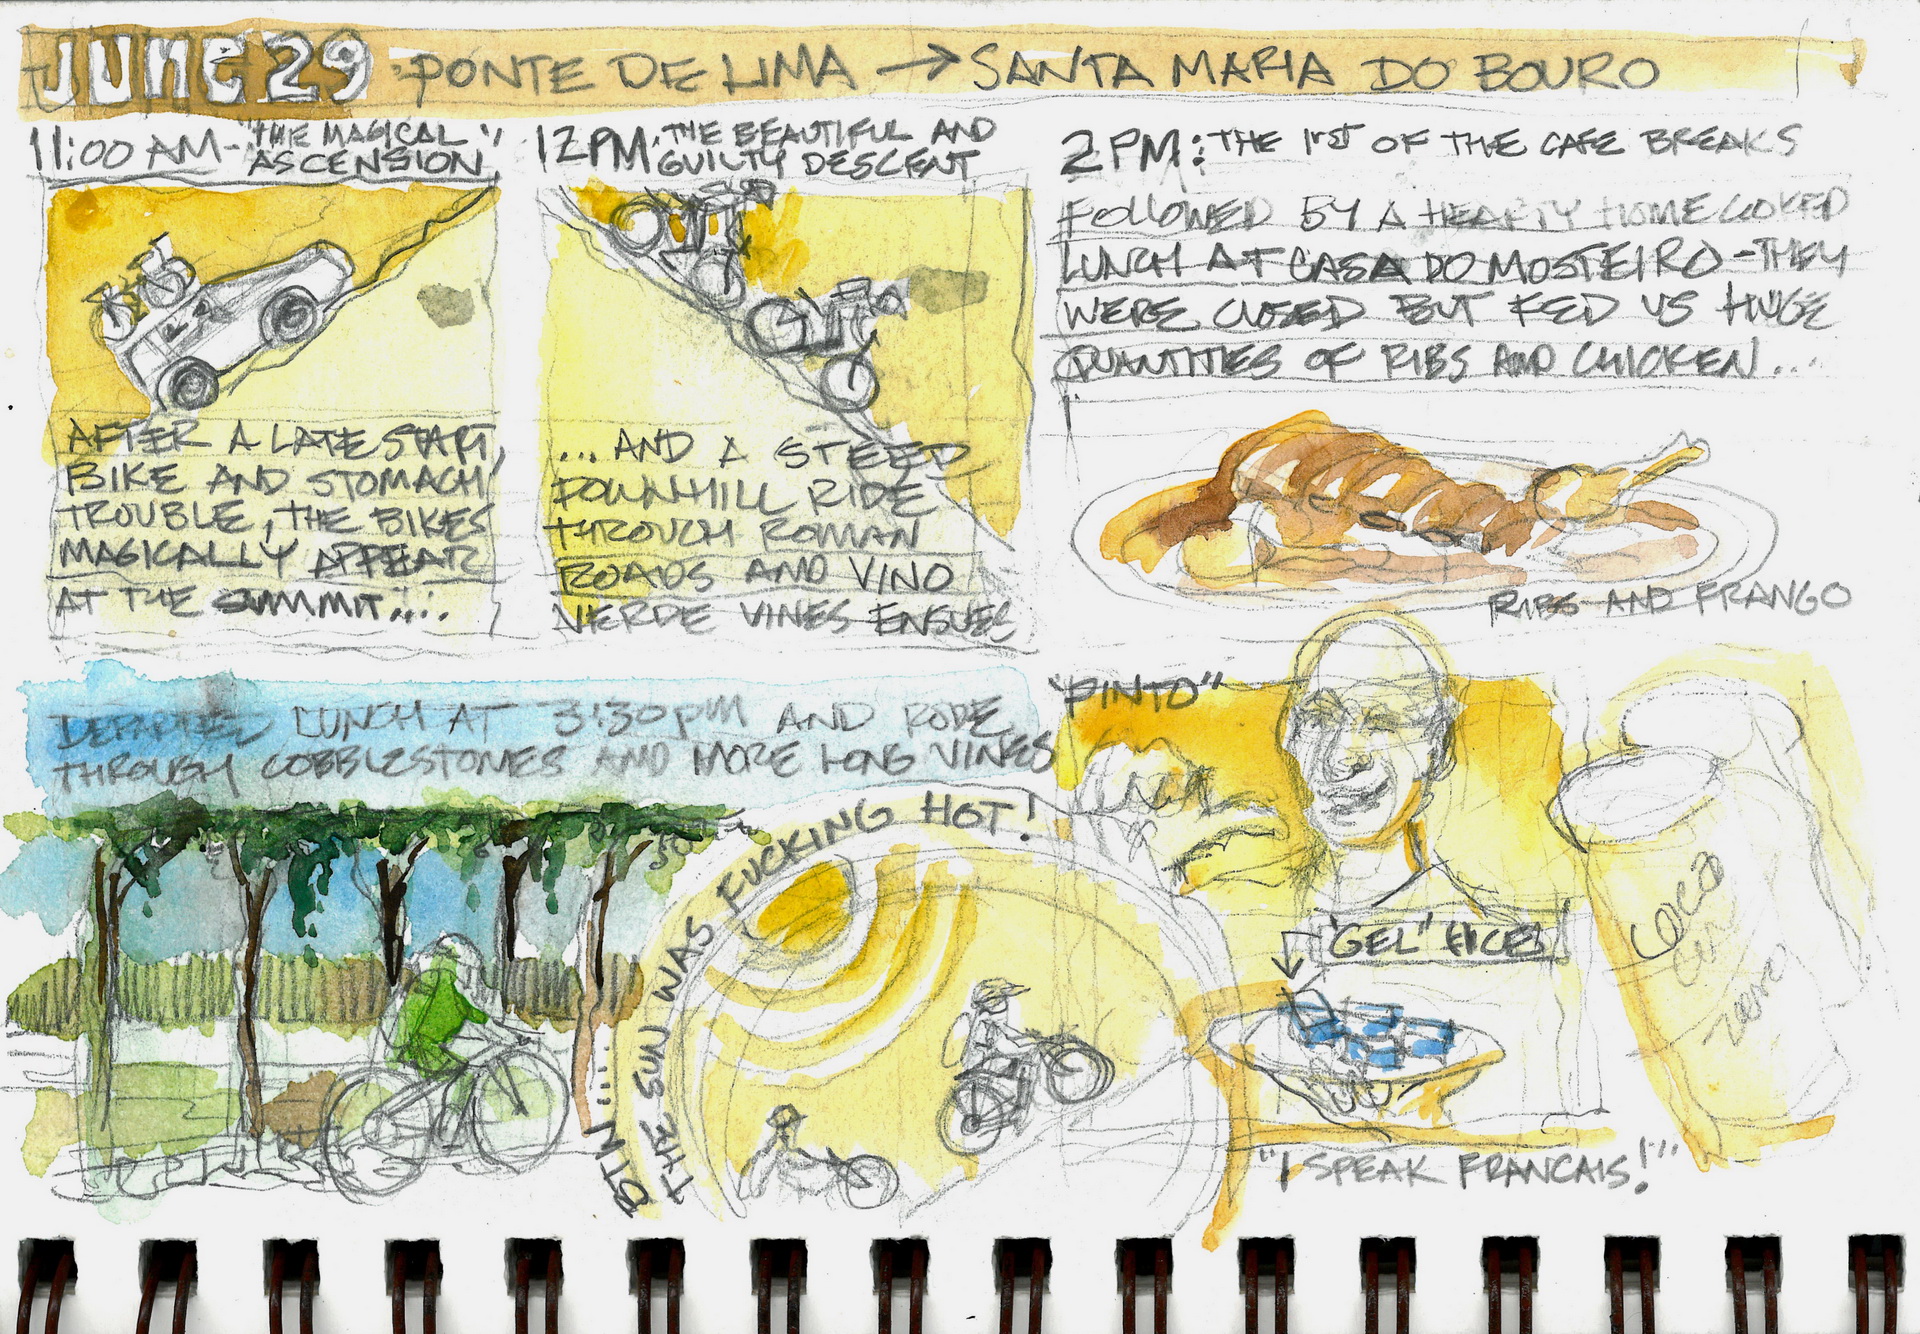 JUNE 29 PONTE DE LIMA → SANTA MARIA DO BOURO
11:00 AM - "THE MAGICAL
ASCENSION"
AFTER A LATE START,
BIKE AND STOMACH
TROUBLE, THE BIKES
MAGICALLY APPEAR
AT THE SUMMIT....
12 PM: THE BEAUTIFUL AND
GUILTY DESCENT
...AND A STEED
DOWNHILL RIDE
THROUGH ROMAN
ROADS AND VINO
VERDE VINES ENSUES
2 PM: THE 1RST OF THE CAFE BREAKS
FOLLOWED BY A HEARTY HOME COOKED
LUNCH AT CASA DO MOSTEIRO - THEY
WERE CLOSED BUT FED US HUGE
QUANTITIES OF RIBS AND CHICKEN...
RIBS AND FRANGO
DEPARTED LUNCH AT 3:30PM AND RODE
THROUGH COBBLESTONES AND MORE LONG VINES
BTW....
THE SUN WAS FUCKING HOT!
"PINTO"
"GEL" ICE
COCA
ZERO
"I SPEAK FRANCAIS!"